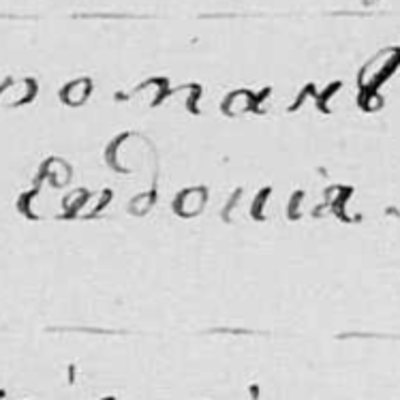 романъ
Евдокія